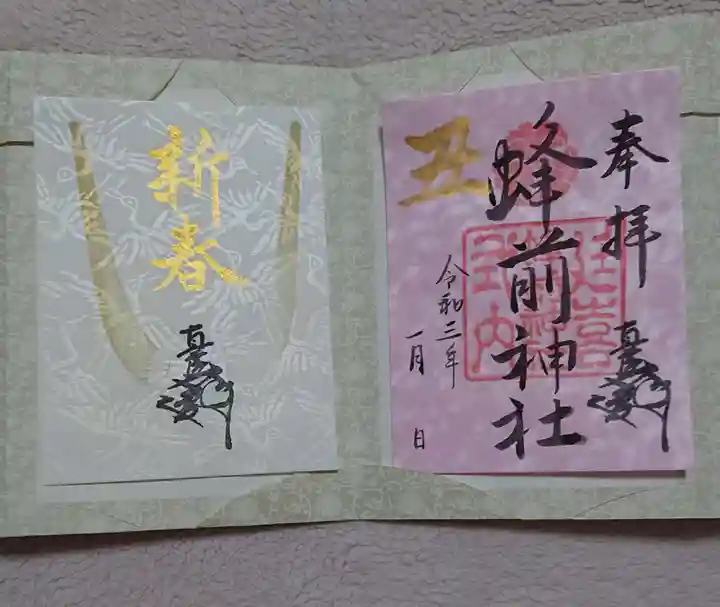 奉拝
蜂前神社
丑
令和三年
一月 日
新春